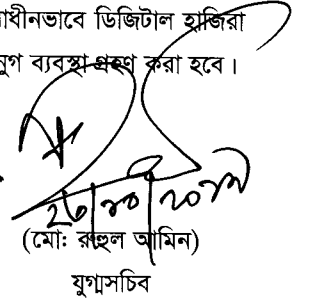 াধীনভাবে ডিজিটাল হাজিরা
নুগ ব্যবস্থা গ্রহণ করা হবে।
(মোঃ রাহুল আমিন)
যুগ্মসচিব